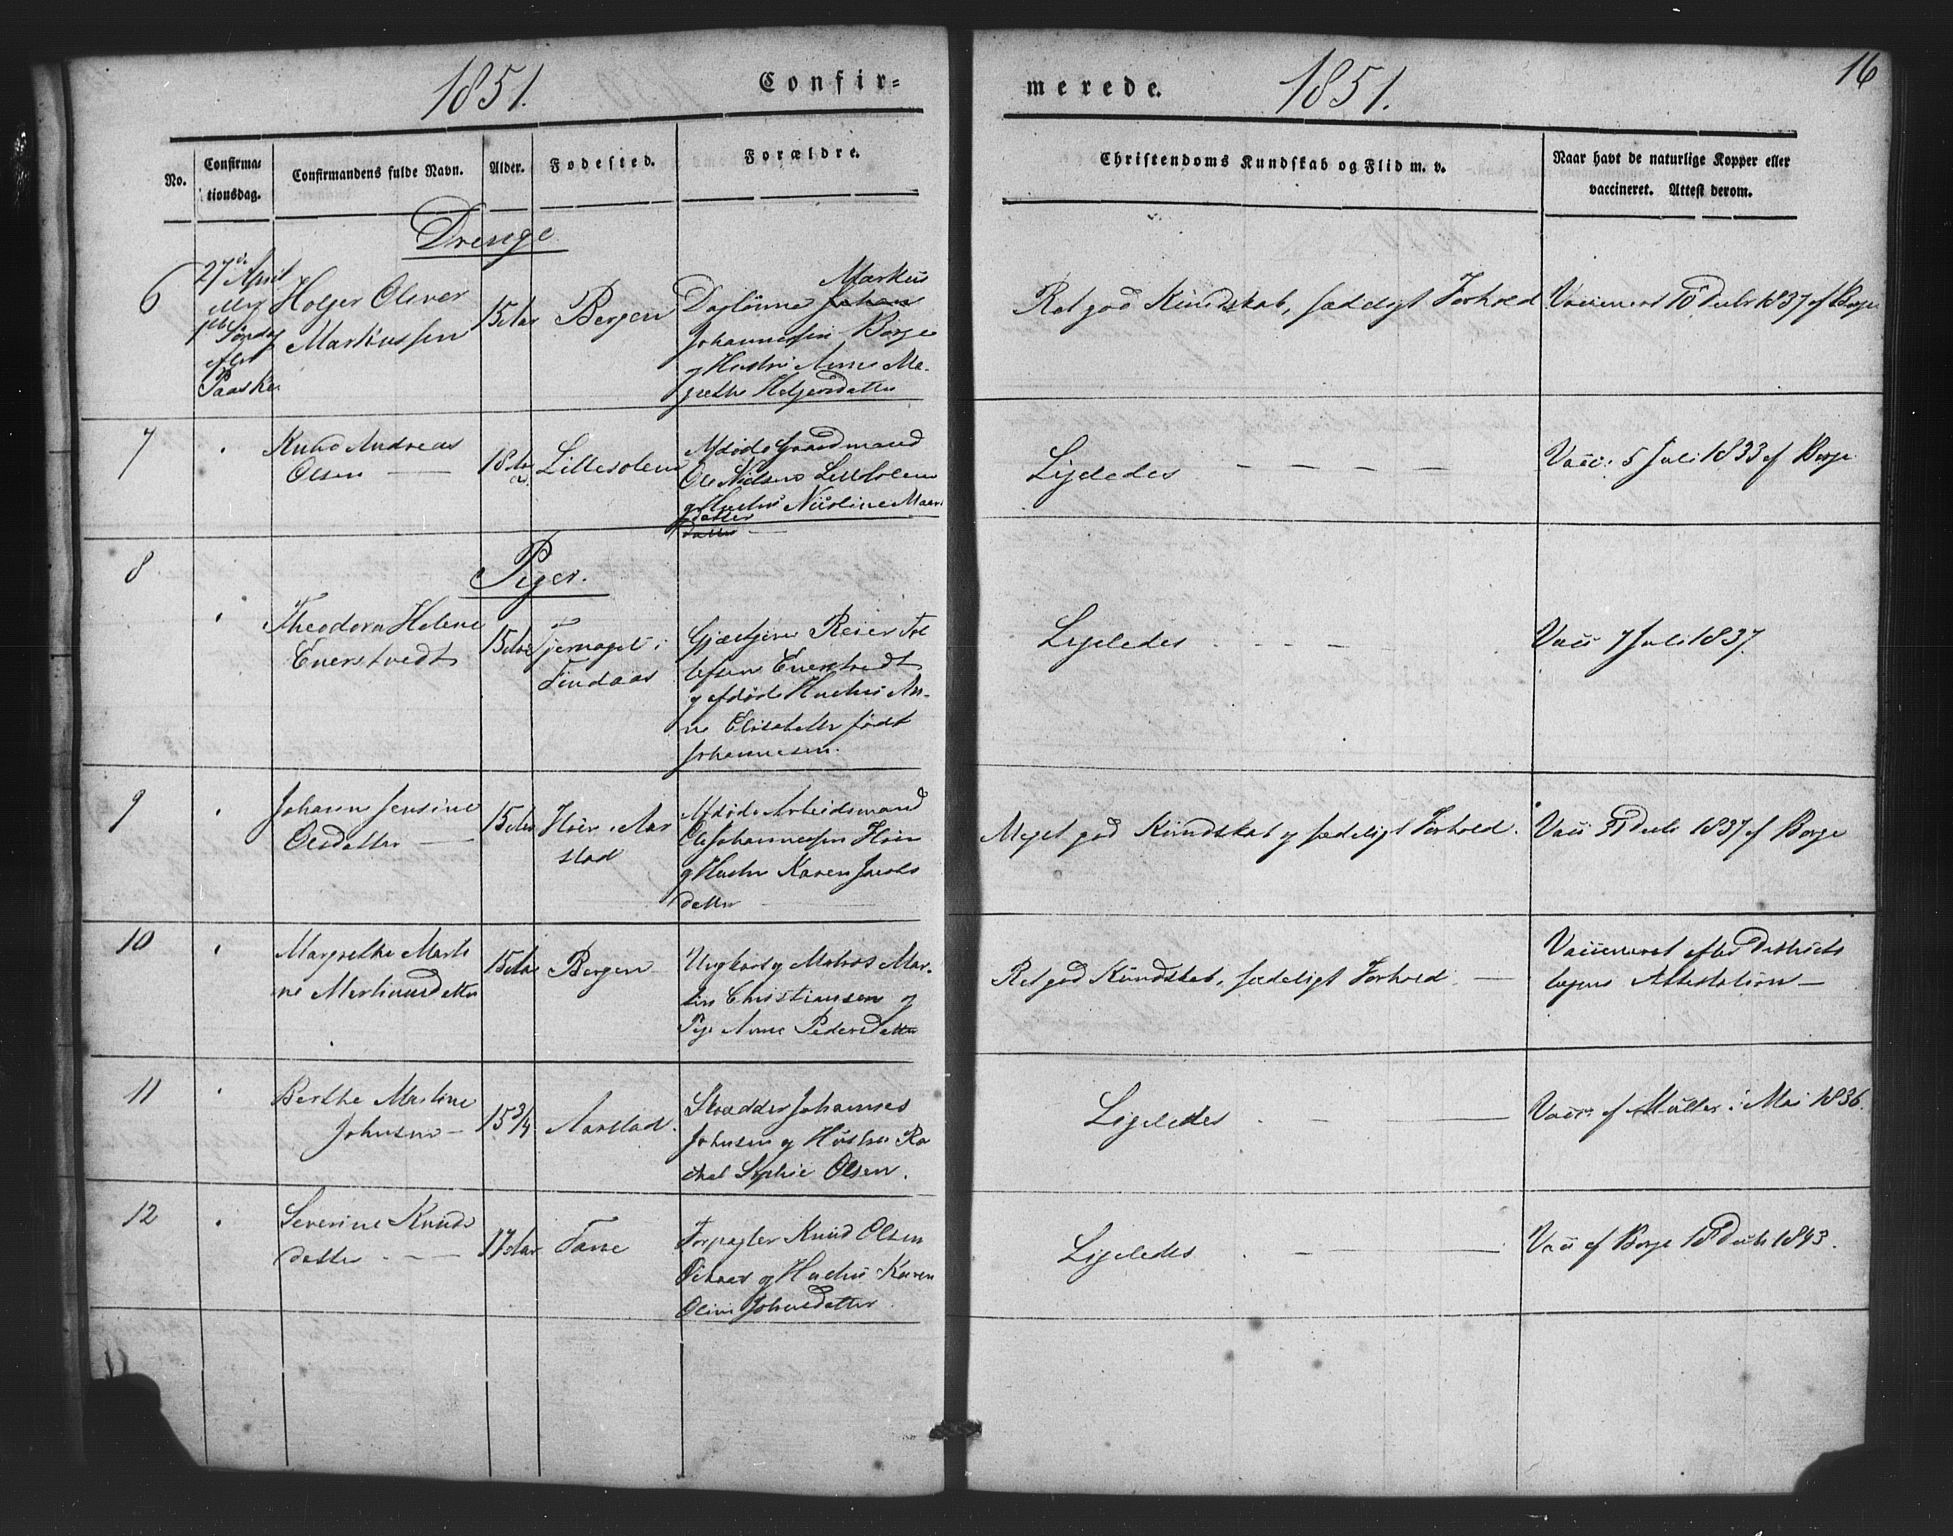 1851. Confir= merede. 1851. 16
No. Confirma= tionsdag. Confirmandens fulde Navn. Alder. Fødested. Forældre. Christendoms Kundskab og Flid m. v. Naar havt de naturlige Kopper eller vaccineret. Attest derom.
Drenge
6
27de April
Søndag
efter
Paaske
Holger Oliver
Markussen
15 Aar
Bergen
Markus
Daglønner Johan
Johannessen Borge
og Hustru Anne Ma-
grethe Holgersdatter
Ret god Kundskab, sædeligt Forhold
Vaccineret 10 Decbr 1837 af Borge
7
Knud Andreas
Olsen
18
Lillesolem
Afdøde Gaardmand
Ole Nielsen Lillesolem
og Hustru Nicoline
datter
datter
Ligeledes
Vacc: 5 Juli 1833 af Borge
8
Piger.
Theodora Helene
Enerstvedt
15 Aar
Tjernaget i
Findaas
Gjæstgiver Reier Tol
lefsen Enerstvedt
og afdøde Hustru An-
ne Elisabeth født
Johannesen.
Ligeledes
Vacc 7 Juli 1837.
9
Johanne Jensine
Olsdatter
15 Aar
i Aar
stad
Afdøde Arbeidsmand
Ole Johannessen
og Hustru Karen Jacobs
datter
Meget god Kundskab og sædeligt Forhold.
Vacc Decbr 1837 af Borge
10
Margrethe Marti
ne Martinusdatter
15 Aar
Bergen
Ungkarl og Matros Mar-
tin Christiansen og
Pige Anne Pedersdatter
Ret god Kundskab, sædeligt Forhold
Vaccineret efter Districts
lægens Attestation
11
Berthe Martine
Johnsen
15 3/4
Aarstad.
Skrædder Johannes
Johnsen og Hustru Ra
chel Sophie Olsen.
Ligeledes
Vacc: af Müller i Mai 1836.
12
Severine Knuds
datter
17 Aar
Fane
Forpagter Knud Olsen
og Hustru Karen
Oline Johnsdatter
Ligeledes
Vacc af Borge 18 Decbr 1843.